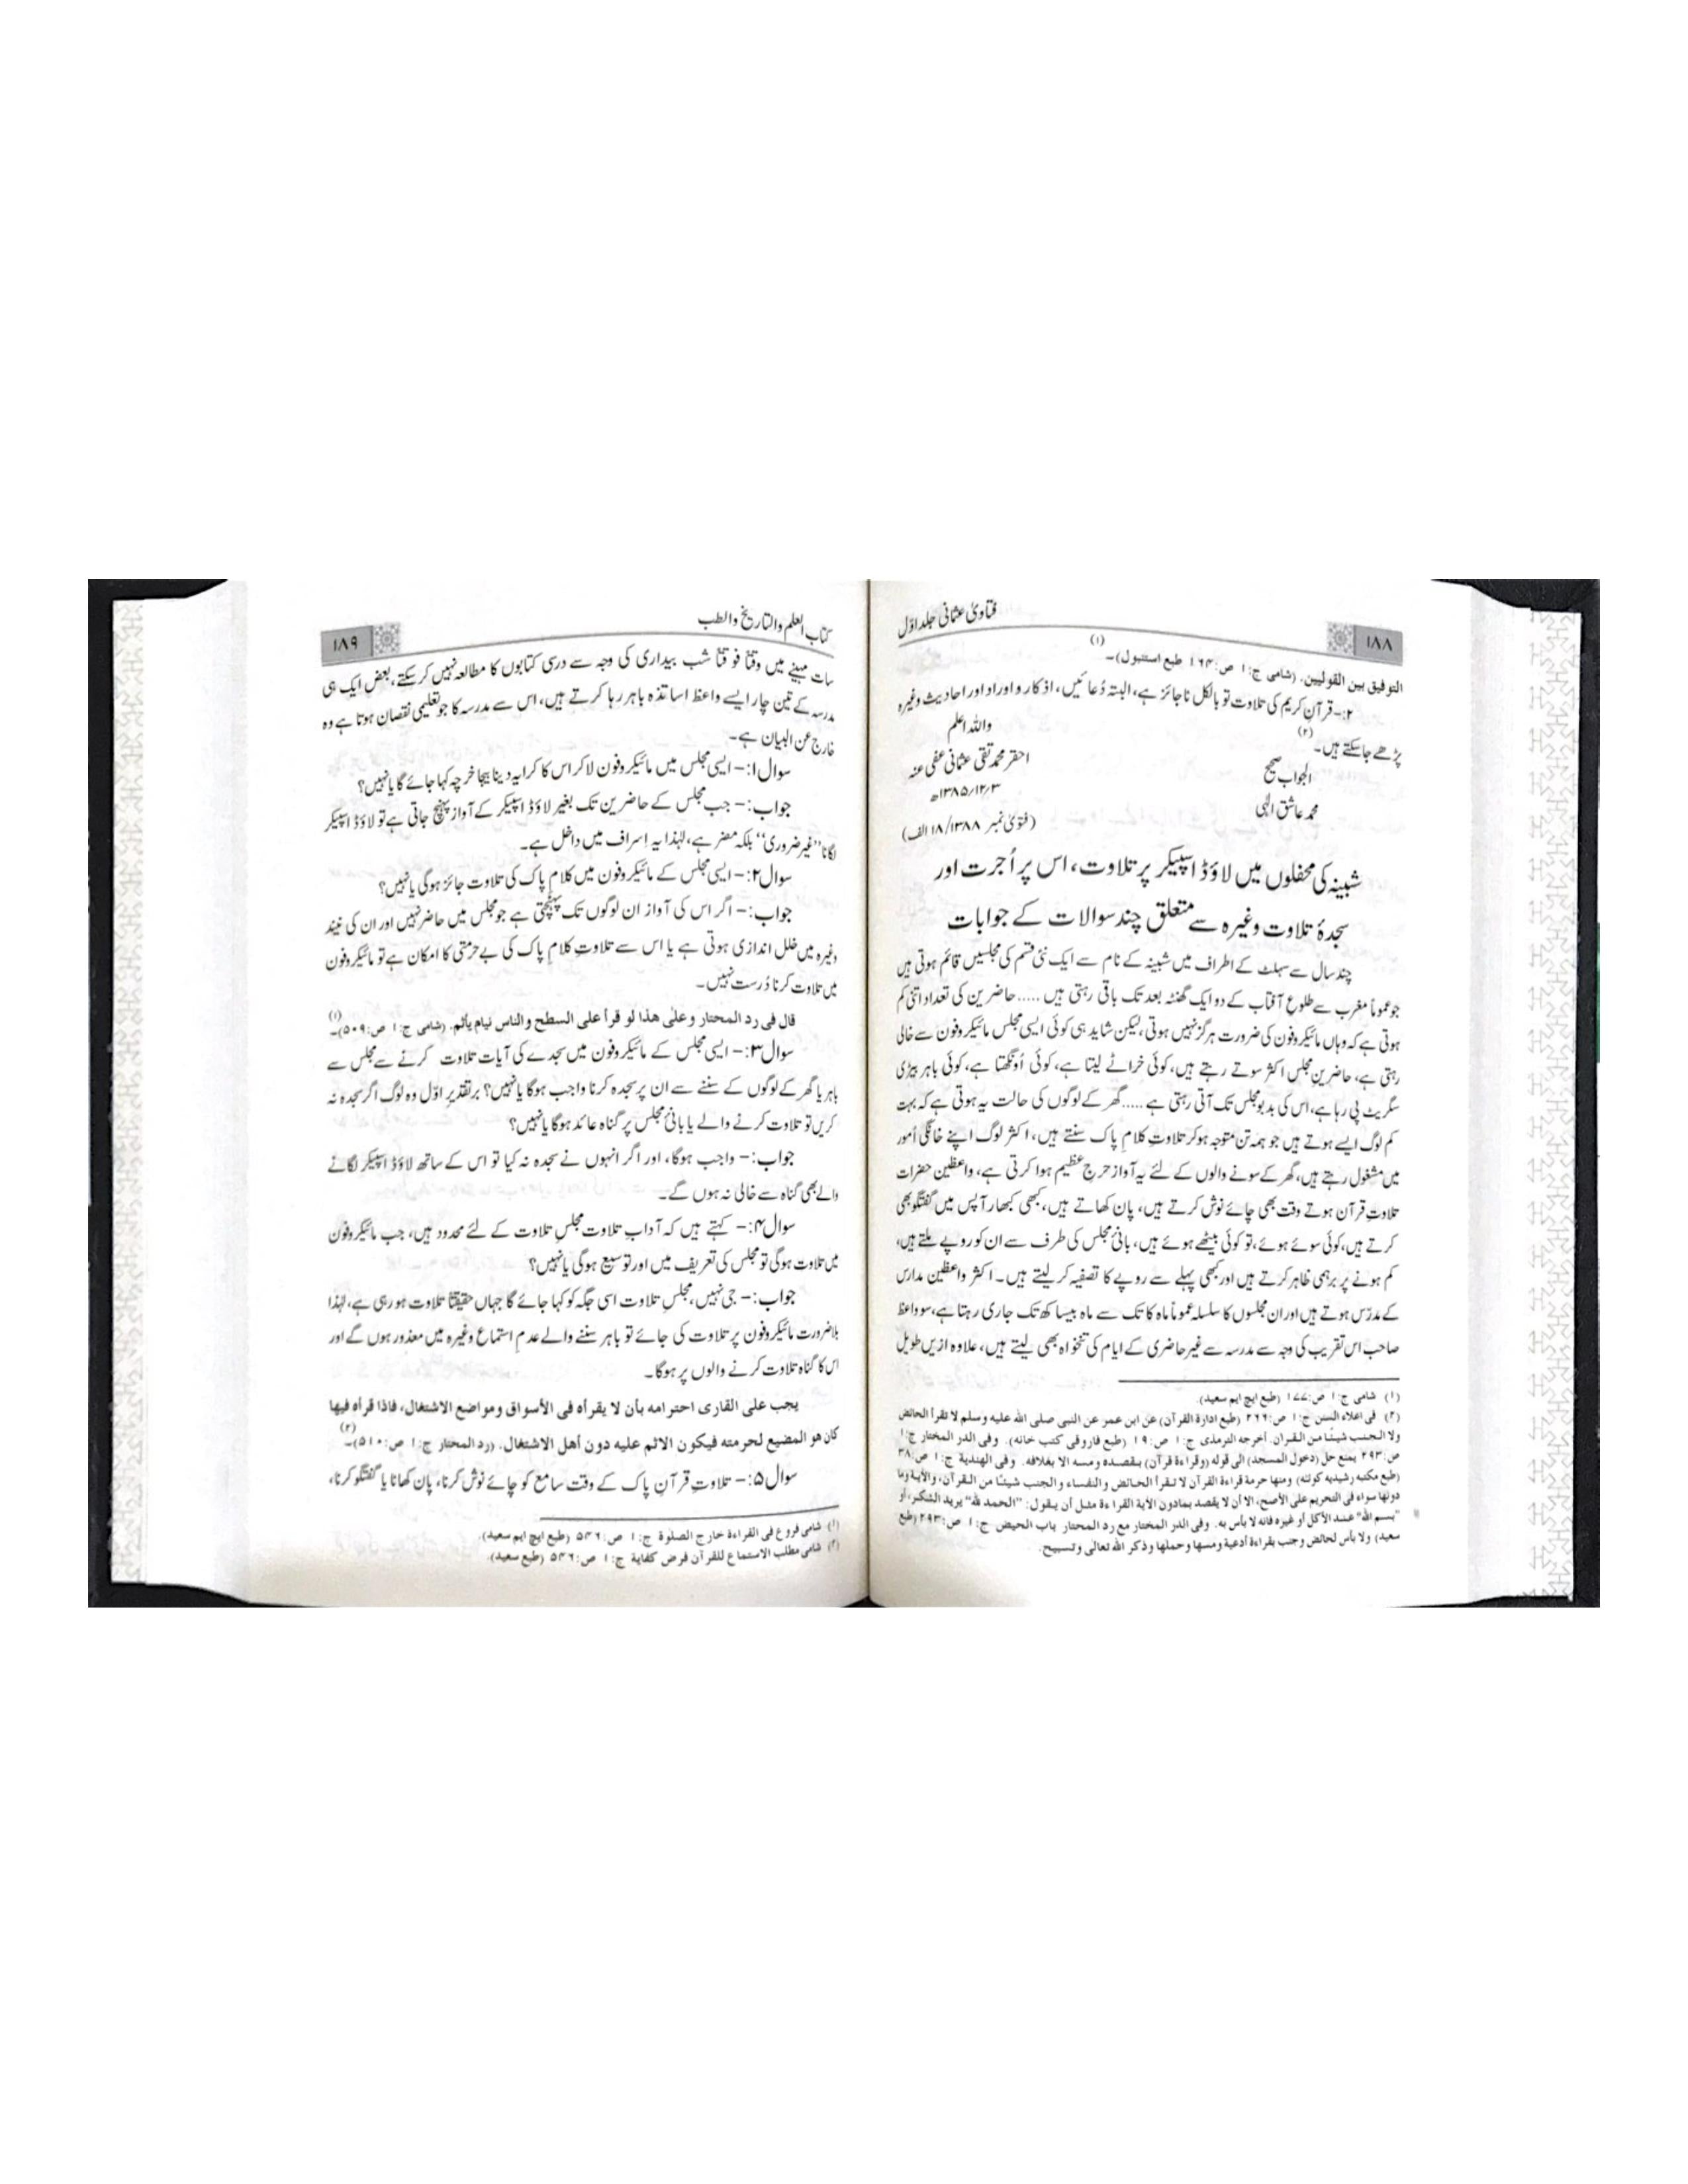 ۱۸۸
فتاویٰ عثمانی جلد اوّل
التوفیق بین القولیین. (شامی ج:۱ ص:۱۶۴ طبع استنبول)۔ (۱)
۲:- قرآنِ کریم کی تلاوت تو بالکل ناجائز ہے، البتہ دُعائیں، اذکار و اوراد اور احادیث وغیرہ
پڑھے جاسکتے ہیں۔ (۲)
واللہ اعلم
احقر محمد تقی عثمانی عفی عنہ
۱۳۸۵/۱۲/۳ھ
(فتویٰ نمبر ۱۸/۱۳۸۸ الف)
الجواب صحیح
محمد عاشق الٰہی
شبینہ کی محفلوں میں لاؤڈ اسپیکر پر تلاوت، اس پر اُجرت اور
سجدۂ تلاوت وغیرہ سے متعلق چند سوالات کے جوابات
چند سال سے سہلٹ کے اطراف میں شبینہ کے نام سے ایک نئی قسم کی مجلسیں قائم ہوتی ہیں
جو عموماً مغرب سے طلوعِ آفتاب کے دو ایک گھنٹہ بعد تک باقی رہتی ہیں ..... حاضرین کی تعداد اتنی کم
ہوتی ہے کہ وہاں مائیکروفون کی ضرورت ہرگز نہیں ہوتی، لیکن شاید ہی کوئی ایسی مجلس مائیکروفون سے خالی
رہتی ہے، حاضرینِ مجلس اکثر سوتے رہتے ہیں، کوئی خراٹے لیتا ہے، کوئی اُونگھتا ہے، کوئی باہر بیڑی
سگریٹ پی رہا ہے، اس کی بدبو مجلس تک آتی رہتی ہے ..... گھر کے لوگوں کی حالت یہ ہوتی ہے کہ بہت
کم لوگ ایسے ہوتے ہیں جو ہمہ تن متوجہ ہوکر تلاوتِ کلامِ پاک سنتے ہیں، اکثر لوگ اپنے خانگی اُمور
میں مشغول رہتے ہیں، گھر کے سونے والوں کے لئے یہ آواز حرجِ عظیم ہوا کرتی ہے، واعظین حضرات
تلاوتِ قرآن ہوتے وقت بھی چائے نوش کرتے ہیں، پان کھاتے ہیں، کبھی کبھار آپس میں گفتگو بھی
کرتے ہیں، کوئی سوئے ہوئے، تو کوئی بیٹھے ہوئے ہیں، بانیٔ مجلس کی طرف سے ان کو روپے ملتے ہیں،
کم ہونے پر برہمی ظاہر کرتے ہیں اور کبھی پہلے سے روپے کا تصفیہ کر لیتے ہیں۔ اکثر واعظین مدارس
کے مدرّس ہوتے ہیں اور ان مجلسوں کا سلسلہ عموماً ماہ کا تک سے ماہ بیساکھ تک جاری رہتا ہے، سو واعظ
صاحب اس تقریب کی وجہ سے مدرسہ سے غیر حاضری کے ایام کی تنخواہ بھی لیتے ہیں، علاوہ ازیں طویل
(۱) شامی ج:۱ ص:۱۷۷ (طبع ایچ ایم سعید).
(۲) فی اعلاء السنن ج:۱ ص:۲۶۶ (طبع ادارۃ القرآن) عن ابن عمر عن النبی صلی اللہ علیہ وسلم لا تقرأ الحائض
ولا الجنب شیئًا من القرآن. أخرجه الترمذی ج:۱ ص:۱۹ (طبع فاروقی کتب خانہ). وفی الدر المختار ج:۱
ص:۲۹۳ یمنع حل (دخول المسجد) الی قوله (وقراءۃ قرآن) بقصده ومسه الا بغلافه. وفی الهندیة ج:۱ ص:۳۸
(طبع مکتبہ رشیدیہ کوئٹہ) ومنها حرمة قراءۃ القرآن لا تقرأ الحائض والنفساء والجنب شیئًا من القرآن، والآیة وما
دونها سواء فی التحریم علی الأصح، الا أن لا یقصد بمادون الآیة القراءة مثل أن یقول: "الحمد لله" یرید الشکر، أو
"بسم الله" عند الأکل أو غیره فانه لا بأس به. وفی الدر المختار مع رد المحتار باب الحیض ج:۱ ص:۲۹۳ (طبع
سعید) ولا بأس لحائض وجنب بقراءة أدعیة ومسها وحملها وذکر الله تعالی وتسبیح.
کتاب العلم والتاریخ والطب
۱۸۹
سات مہینے میں وقتاً فوقتاً شب بیداری کی وجہ سے درسی کتابوں کا مطالعہ نہیں کرسکتے، بعض ایک ہی
مدرسہ کے تین چار ایسے واعظ اساتذہ باہر رہا کرتے ہیں، اس سے مدرسہ کا جو تعلیمی نقصان ہوتا ہے وہ
خارج عن البیان ہے۔
سوال۱:- ایسی مجلس میں مائیکروفون لاکر اس کا کرایہ دینا بیجا خرچہ کہا جائے گا یا نہیں؟
جواب:- جب مجلس کے حاضرین تک بغیر لاؤڈ اسپیکر کے آواز پہنچ جاتی ہے تو لاؤڈ اسپیکر
لگانا ''غیر ضروری'' بلکہ مضر ہے، لہٰذا یہ اِسراف میں داخل ہے۔
سوال۲:- ایسی مجلس کے مائیکروفون میں کلامِ پاک کی تلاوت جائز ہوگی یا نہیں؟
جواب:- اگر اس کی آواز ان لوگوں تک پہنچتی ہے جو مجلس میں حاضر نہیں اور ان کی نیند
وغیرہ میں خلل اندازی ہوتی ہے یا اس سے تلاوتِ کلامِ پاک کی بے حرمتی کا امکان ہے تو مائیکروفون
میں تلاوت کرنا دُرست نہیں۔
قال فی رد المحتار وعلٰی هذا لو قرأ علی السطح والناس نیام یأثم. (شامی ج:۱ ص:۵۰۹)۔ (۱)
سوال۳:- ایسی مجلس کے مائیکروفون میں سجدے کی آیات تلاوت کرنے سے مجلس سے
باہر یا گھر کے لوگوں کے سننے سے ان پر سجدہ کرنا واجب ہوگا یا نہیں؟ برتقدیر اوّل وہ لوگ اگر سجدہ نہ
کریں تو تلاوت کرنے والے یا بانیٔ مجلس پر گناہ عائد ہوگا یا نہیں؟
جواب:- واجب ہوگا، اور اگر انہوں نے سجدہ نہ کیا تو اس کے ساتھ لاؤڈ اسپیکر لگانے
والے بھی گناہ سے خالی نہ ہوں گے۔
سوال۴:- کہتے ہیں کہ آدابِ تلاوت مجلسِ تلاوت کے لئے محدود ہیں، جب مائیکروفون
میں تلاوت ہوگی تو مجلس کی تعریف میں اور توسیع ہوگی یا نہیں؟
جواب:- جی نہیں، مجلسِ تلاوت اسی جگہ کو کہا جائے گا جہاں حقیقتًا تلاوت ہورہی ہے، لہٰذا
بلاضرورت مائیکروفون پر تلاوت کی جائے تو باہر سننے والے عدمِ استماع وغیرہ میں معذور ہوں گے اور
اس کا گناہ تلاوت کرنے والوں پر ہوگا۔
یجب علی القاری احترامه بأن لا یقرأه فی الأسواق ومواضع الاشتغال، فاذا قرأه فیها
کان هو المضیع لحرمته فیکون الاثم علیه دون أهل الاشتغال. (رد المحتار ج:۱ ص:۵۱۰)۔ (۲)
سوال۵:- تلاوتِ قرآنِ پاک کے وقت سامع کو چائے نوش کرنا، پان کھانا یا گفتگو کرنا،
(۱) شامی فروع فی القراءۃ خارج الصلوۃ ج:۱ ص:۵۴۶ (طبع ایچ ایم سعید).
(۲) شامی مطلب الاستماع للقرآن فرض کفایة ج:۱ ص:۵۴۶ (طبع سعید).